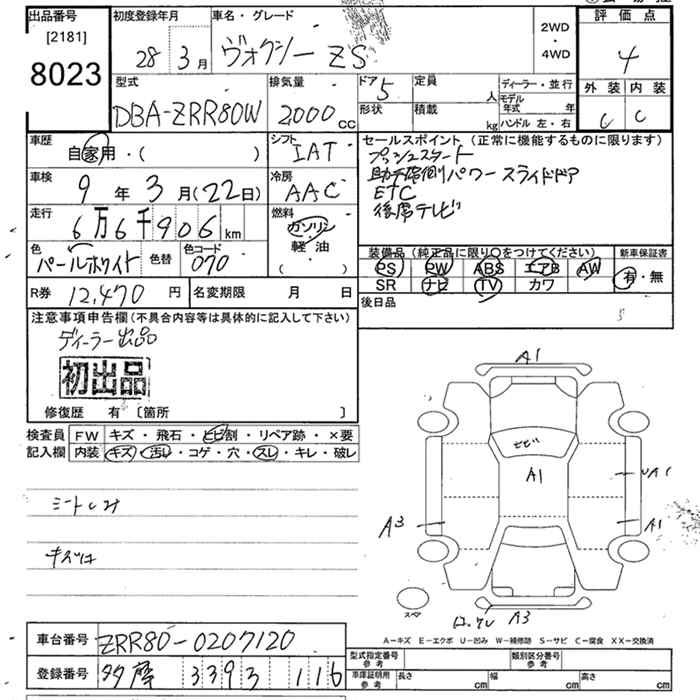 出品番号 初度登録年月 車名・グレード 評価点
[2181] 8023 28年 3月 ヴォクシー ZS 2WD・4WD 4
型式 排気量 ドア 5 定員 人 ディーラー・並行 外装 内装
DBA-ZRR80W 2000 CC 形状 積載 kg モデル年式 年 ハンドル 左・右 C
車歴 自家用・( ) シフト IAT セールスポイント (正常に機能するものに限ります)
プッシュスタート
助手席側パワースライドドア
ETC
後席テレビ
車検 9年 3月(22日) 冷房 AAC
走行 6万6千906km 燃料 ガソリン・軽油・( )
色 パールホワイト 色替 色コード 070
装備品 (純正品に限り○をつけてください) 新車保証書
PS PW ABS エアB AW 有・無
SR ナビ TV カワ
R券 12,470円 名変期限 月 日 後日品
注意事項申告欄(不具合内容等は具体的に記入して下さい)
ディーラー出品
初出品
修復歴 有 〔箇所 〕
検査員記入欄 FW キズ・飛石・ヒビ割・リペア跡・×要
内装 キズ・汚レ・コゲ・穴・スレ・キレ・破レ
シートしみ
A1
ヒビ
A1
UA1
A3
A1
スペア
A3
A-キズ E-エクボ U-凹み W-補修跡 S-サビ C-腐食 XX-交換済
車台番号 ZRR80-0207120
登録番号 多摩 339 3 116
型式指定番号 参考 類別区分番号 参考
車庫証明用 参考 長さ cm 幅 cm 高さ cm